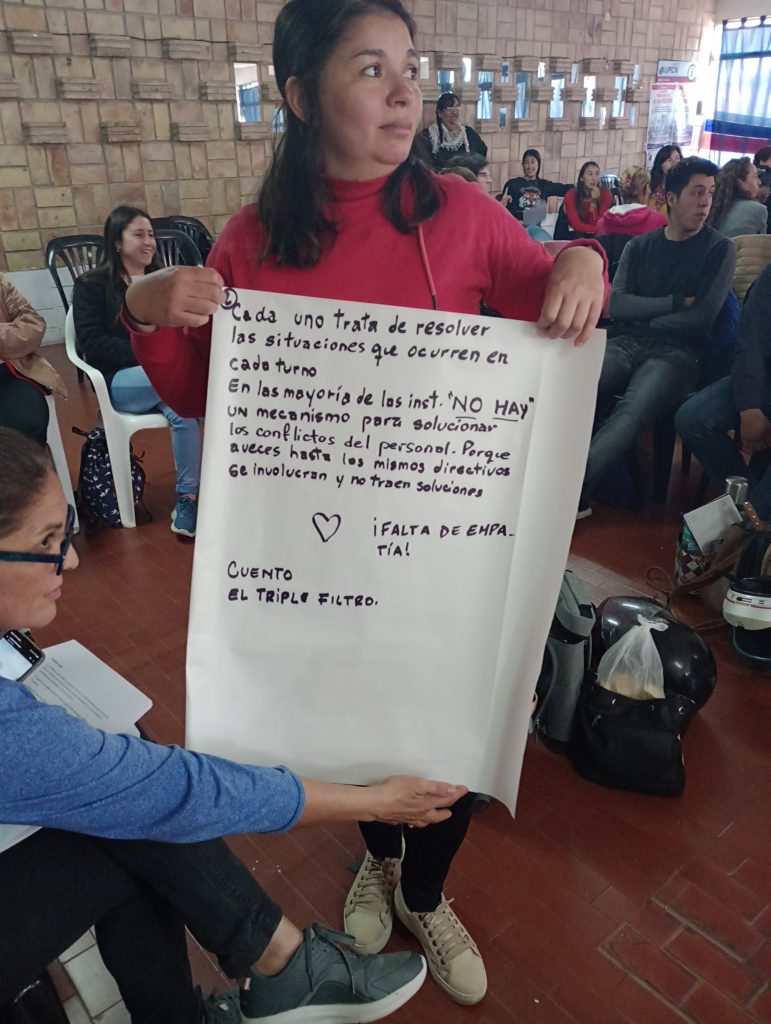 ① Cada uno trata de resolver
las situaciones que ocurren en
cada turno
En las mayoría de las inst. "NO HAY"
un mecanismo para solucionar
los conflictos del personal. Porque
aveces hasta los mismos directivos
se involucran y no traen soluciones
¡FALTA DE EMPA-
TÍA!
CUENTO
EL TRIPLE FILTRO.
UPCN